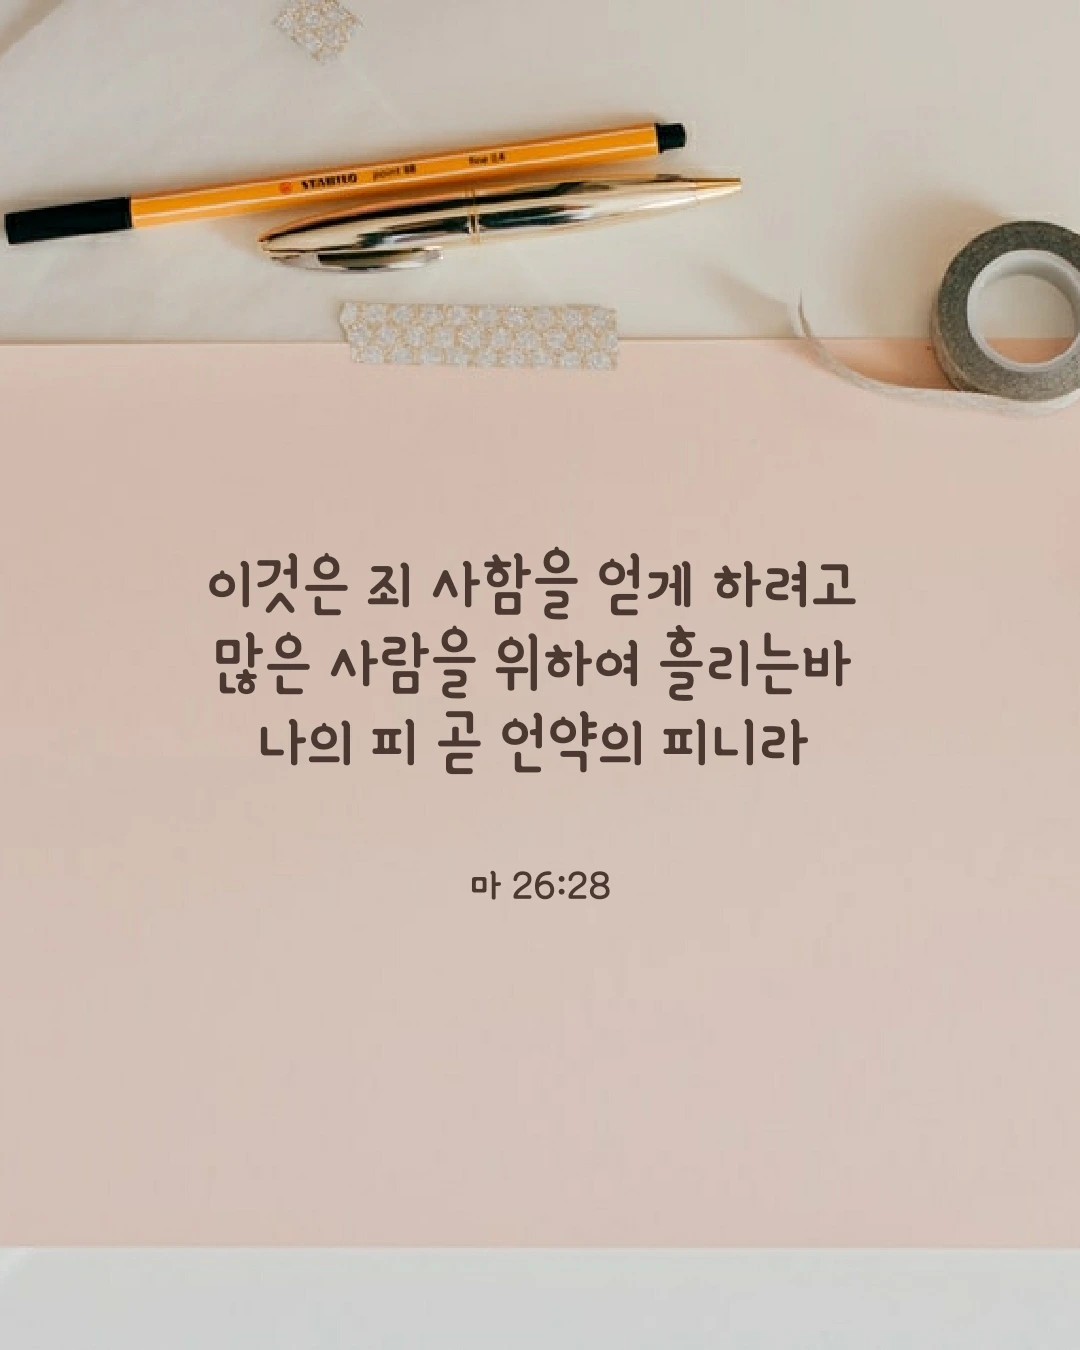 STABILO point 88 fine 0,4
이것은 죄 사함을 얻게 하려고
많은 사람을 위하여 흘리는바
나의 피 곧 언약의 피니라
마 26:28